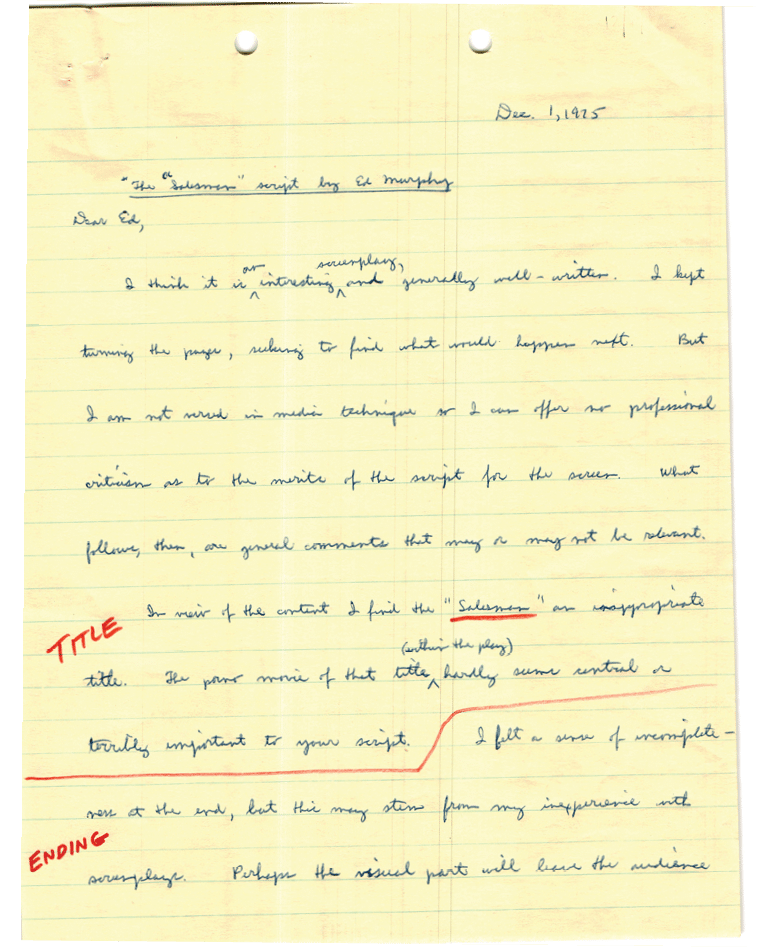 Dec. 1, 1975
"The "Salesman" script by Ed Murphy
Dear Ed,
an screenplay,
I think it is interesting and generally well-written. I kept
turning the pages, seeking to find what would happen next. But
I am not versed in media technique so I can offer no professional
criticism as to the merits of the script for the screen. What
follows, then, are general comments that may or may not be relevant.
In view of the content I find the "Salesman" an inappropriate
TITLE
(within the play)
title. The porno movie of that title hardly seems central or
terribly important to your script. I felt a sense of incomplete-
ness at the end, but this may stem from my inexperience with
ENDING
screenplays. Perhaps the visual part will leave the audience